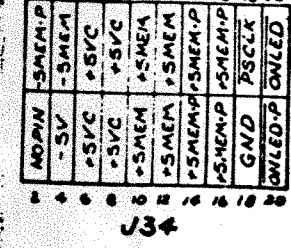 -5MEM·P -5MEM +5VC +5VC +5MEM +5MEM +5MEM·P +5MEM·P PSCLK ONLED
NOPIN -5V +5VC +5VC +5MEM +5MEM +5MEM·P +5MEM·P GND ONLED·P
2 4 6 8 10 12 14 16 18 20
J34